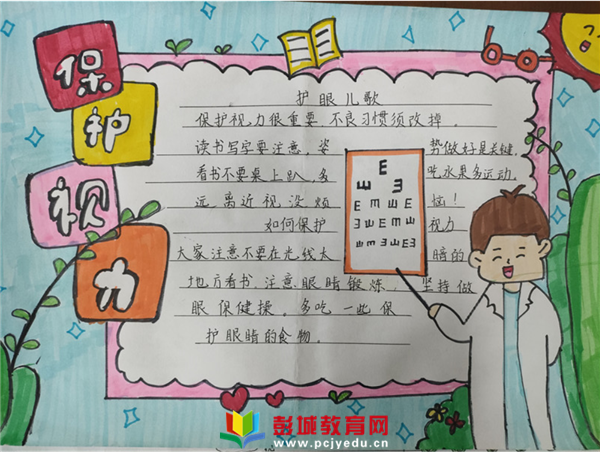 保
护
视
力
护眼儿歌
保护视力很重要 不良习惯须改掉。
读书写字要注意,姿势做好是关键,
看书不要桌上趴,多吃水果多运动,
远离近视没烦恼!
如何保护视力
大家注意不要在光线太暗的
地方看书,注意眼睛锻炼,坚持做
眼保健操。多吃一些保
护眼睛的食物。
E
E E
E m E E
E E m E
E m E E E
彭城教育网
www.pcjyedu.cn